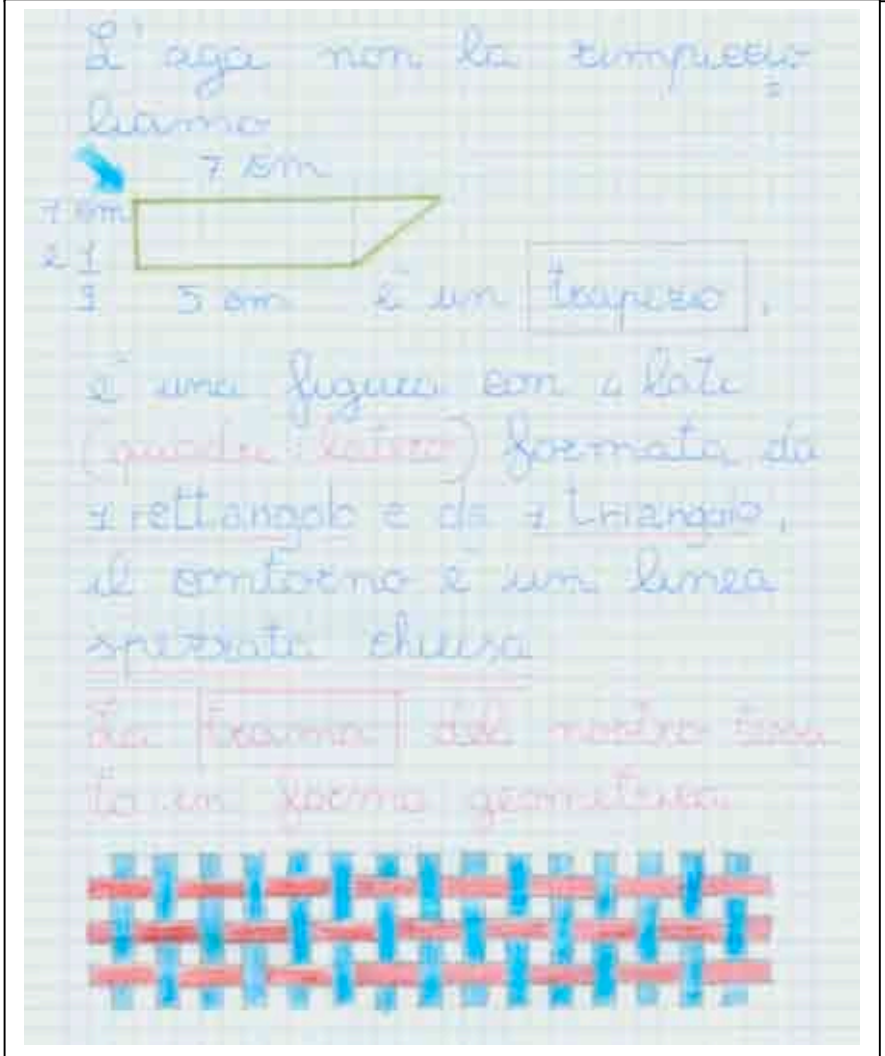 L'aga non la rimpiccio
liamo
7 cm
1 cm
e 1
3
5 cm è un trapezio.
è una figura con 4 lati
(quadrilatero) formata da
1 rettangolo e da 1 triangolo,
il contorno è un linea
spezzata chiusa
La trama del nostro tessu
to in forma geometrica